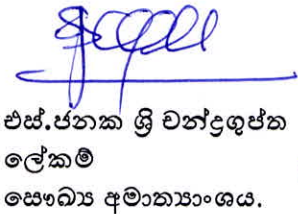 එස්.ජනක ශ්‍රි චන්ද්‍රගුප්ත
ලේකම්
සෞඛ්‍ය අමාත්‍යාංශය.